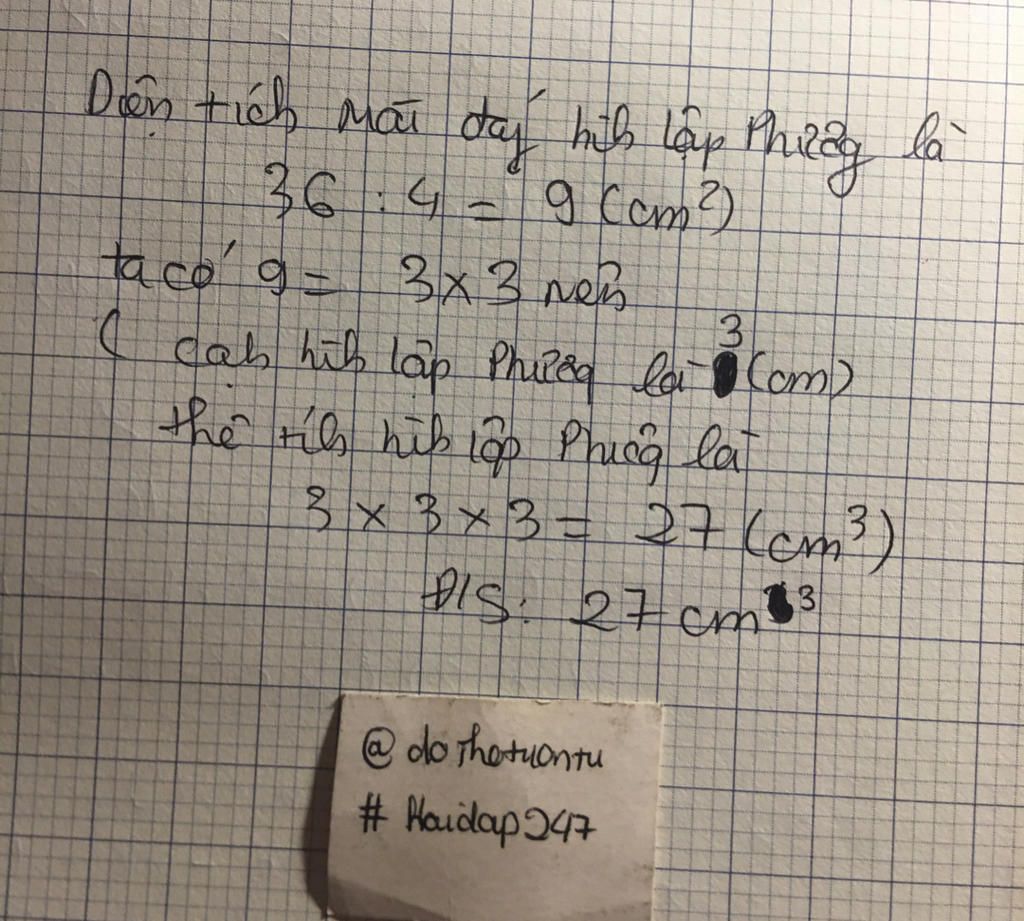 Diện tích mặt đáy hìh lập phương là
36 : 4 = 9 (cm²)
ta có 9 = 3 x 3 nên
( cạh hìh lập phương là 3 (cm)
thể tích hìh lập phương là
3 x 3 x 3 = 27 (cm³)
Đ/S: 27 cm³
@ dothotuontu
# Hoidap247